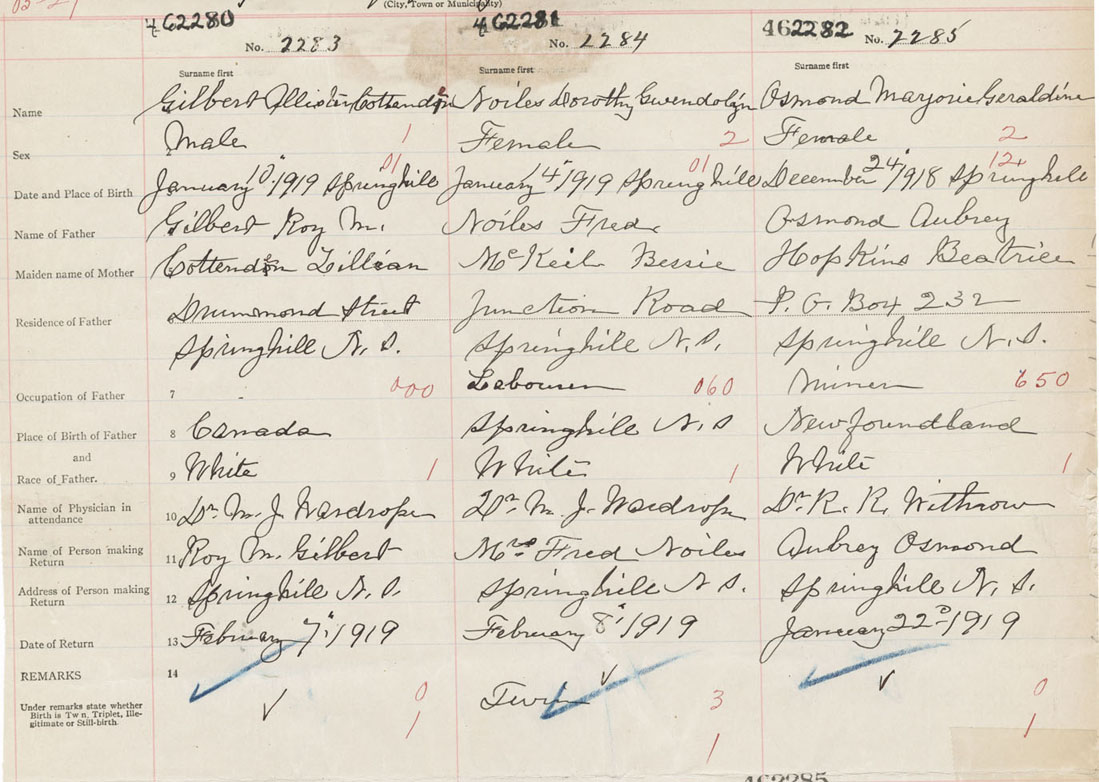 (City, Town or Municipality)
462280 462281 462282
No. 2283 No. 2284 No. 2285
Surname first Surname first Surname first
Name Gilbert Allister Cottenden Noiles Dorothy Gwendolyn Osmond Marjorie Geraldine
Sex Male 1 Female 2 Female 2
01 01 12
Date and Place of Birth January 10" 1919 Springhill January 4" 1919 Springhill December 24" 1918 Springhill
Name of Father Gilbert Roy M. Noiles Fred. Osmond Aubrey
Maiden name of Mother Lillian McKeil Bessie Hopkins Beatrice
Residence of Father Drummond Street Junction Road P. O. Box 232
Springhill N. S. Springhill N. S. Springhill N. S.
Occupation of Father 7 - 000 Labourer 060 Miner 650
Place of Birth of Father 8 Canada Springhill N. S Newfoundland
and
Race of Father. 9 White 1 White 1 White 1
Name of Physician in attendance 10 Dr. M. J. Wardrope Dr. M. J. Wardrope Dr. R. R. Withrow
Name of Person making Return 11 Roy M. Gilbert Mrs Fred Noiles Aubrey Osmond
Address of Person making Return 12 Springhill N. S. Springhill N S. Springhill N. S.
Date of Return 13 February 7" 1919 February 8" 1919 January 22d 1919
REMARKS 14
Under remarks state whether Twin
Birth is Tw n, Triplet, Ille-
gitimate or Still-birth
0 3 0
1 1 1
462285